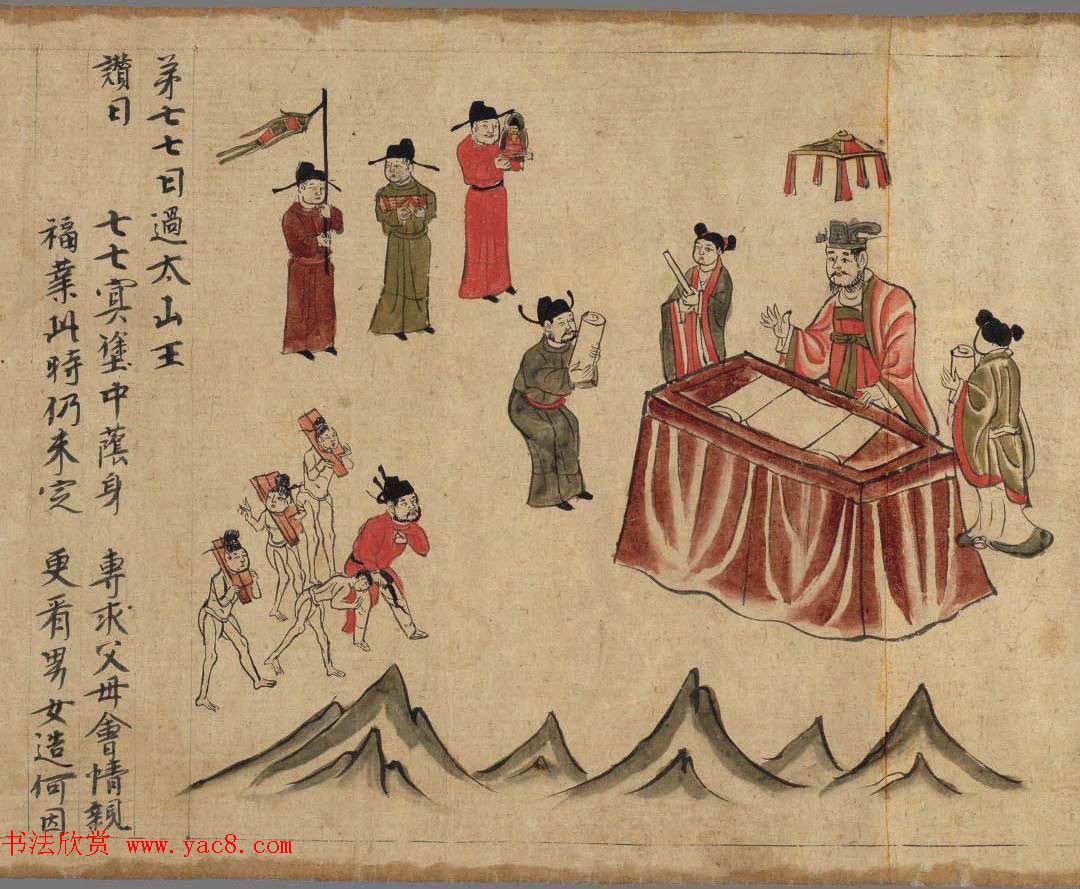 弟七七日過太山王
讚曰
七七冥塗中䕃身 專求父母會情親
福業此時仍未定 更看男女造何因
书法欣赏 www.yac8.com